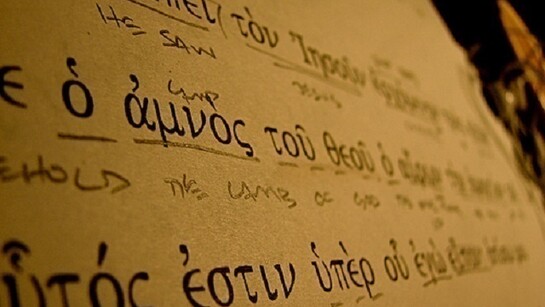 τὸν Ἰησοῦν
HE SAW JESUS
ε ὁ ἀμνὸς τοῦ θεοῦ ὁ αἴρων
LAMB
EHOLD THE LAMB OF GOD
ὗτός ἐστιν ὑπὲρ οὗ ἐγὼ εἶπον